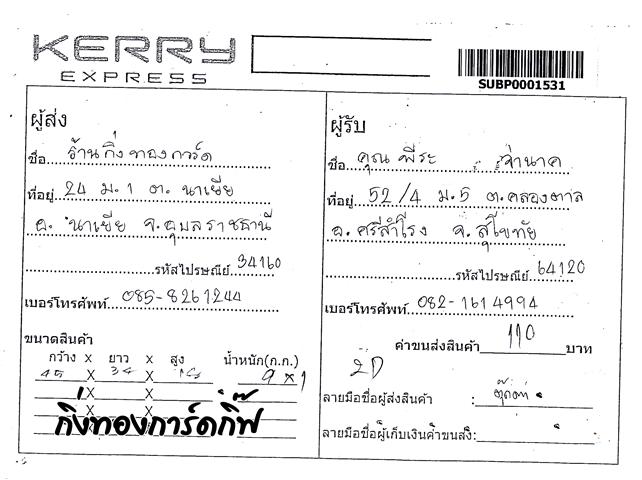 KERRY
EXPRESS
SUBP0001531
ผู้ส่ง
ชื่อ ร้านกิ่งทองการ์ด
ที่อยู่ 24 ม.1 ต. นาเยีย
อ. นาเยีย จ.อุบลราชธานี
รหัสไปรษณีย์ 34160
เบอร์โทรศัพท์ 085-8261244
ขนาดสินค้า
กว้าง x ยาว x สูง น้ำหนัก(ก.ก.)
45 X 34 X 9 x 1
X X
X X
กิ่งทองการ์ดกิ๊ฟ
ผู้รับ
ชื่อ คุณ พีระ
ที่อยู่ 52/4 ม.5 ต.คลองตาล
อ.ศรีสำโรง จ.สุโขทัย
รหัสไปรษณีย์ 64120
เบอร์โทรศัพท์ 082-1614994
ค่าขนส่งสินค้า 110 บาท
2D
ลายมือชื่อผู้ส่งสินค้า :
ลายมือชื่อผู้เก็บเงินค่าขนส่ง: